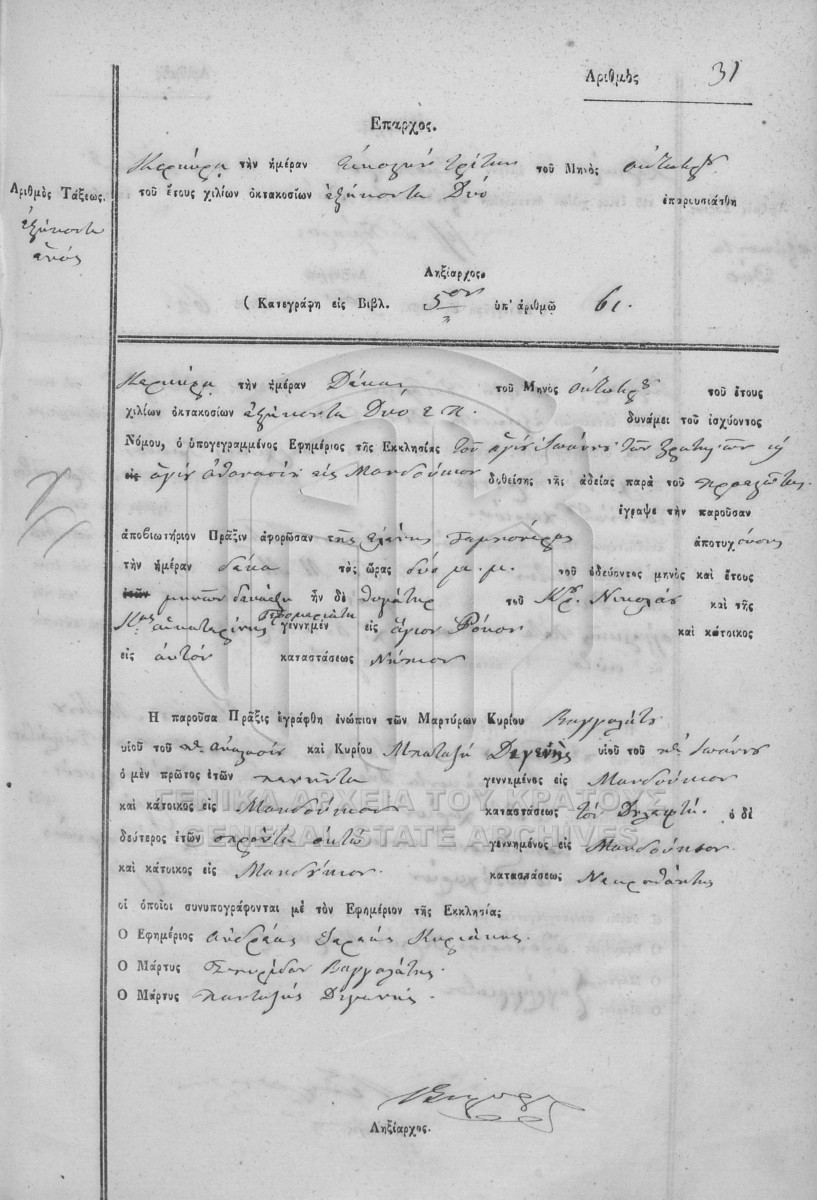 Αριθμὸς 31
Επαρχος.
Κερκύρα τὴν ἡμέραν εἰκοστὴν τρίτην τοῦ Μηνὸς ὀκτωβρ
Αριθμὸς Τάξεως. τοῦ ἔτους χιλίων ὀκτακοσίων ἑξήκοντα Δυό ἐπαρουσιάσθη
ἑξήκοντα
ἑνός
Ληξίαρχος.
( Κατεγράφη εἰς Βιβλ. 5ον ὑπ' ἀριθμῶ 61.
Κερκύρα τὴν ἡμέραν Δέκα τοῦ Μηνὸς ὀκτωβρ τοῦ ἔτους
χιλίων ὀκτακοσίων ἑξήκοντα Δυό ε. π. δυνάμει τοῦ ἰσχύοντος
Νόμου, ὁ ὑπογεγραμμένος Εφημέριος τῆς Εκκλησίας τοῦ ἁγίου Ἰωάννου τῶν
ἁγίου Ἀθανασίου εἰς Μανδούκιον δοθείσης τῆς ἀδείας παρὰ τοῦ
ἔγραψε τὴν παροῦσαν
ἀποβιωτήριον Πρᾶξιν ἀφορῶσαν τῆς Ἑλένης ἀποτυχούσης
τὴν ἡμέραν δέκα τὰς ὥρας δύο μ. μ. τοῦ ὁδεύοντος μηνὸς καὶ ἔτους
ἐτῶν μηνῶν δεκαέξη ἦν δὲ θυγάτηρ τοῦ Κρ. Νικολάου καὶ τῆς
Κας αἰκατερίνης γεννημέν εἰς ἅγιον Ρόκον καὶ κάτοικος
εἰς αὐτόν καταστάσεως Νήπιον
Η παροῦσα Πρᾶξις ἐγράφθη ἐνώπιον τῶν Μαρτύρων Κυρίου Βαρραλάτη
υἱοῦ τοῦ καὶ Κυρίου Δεγενὴς υἱοῦ τοῦ Ἰωάννου
ὁ μὲν πρῶτος ἐτῶν πενήντα γεννημένος εἰς Μανδούκιον
καὶ κάτοικος εἰς Μανδούκιον καταστάσεως ὁ δὲ
δεύτερος ἐτῶν σαράντα ὀκτώ γεννημένος εἰς Μανδούκιον
καὶ κάτοικος εἰς Μανδούκιον καταστάσεως Νεκροθάπτης
οἱ ὁποῖοι συνυπογράφονται μὲ τὸν Εφημέριον τῆς Εκκλησία;
Ο Εφημέριος Ἀνδρέας Ἱερεύς Κυριάκης
Ο Μάρτυς Σπυρίδων Βαρραλάτης
Ο Μάρτυς Πανταζής Δεγενής
Ληξίαρχος.
ΓΕΝΙΚΑ ΑΡΧΕΙΑ ΤΟΥ ΚΡΑΤΟΥΣ
GENERAL STATE ARCHIVES